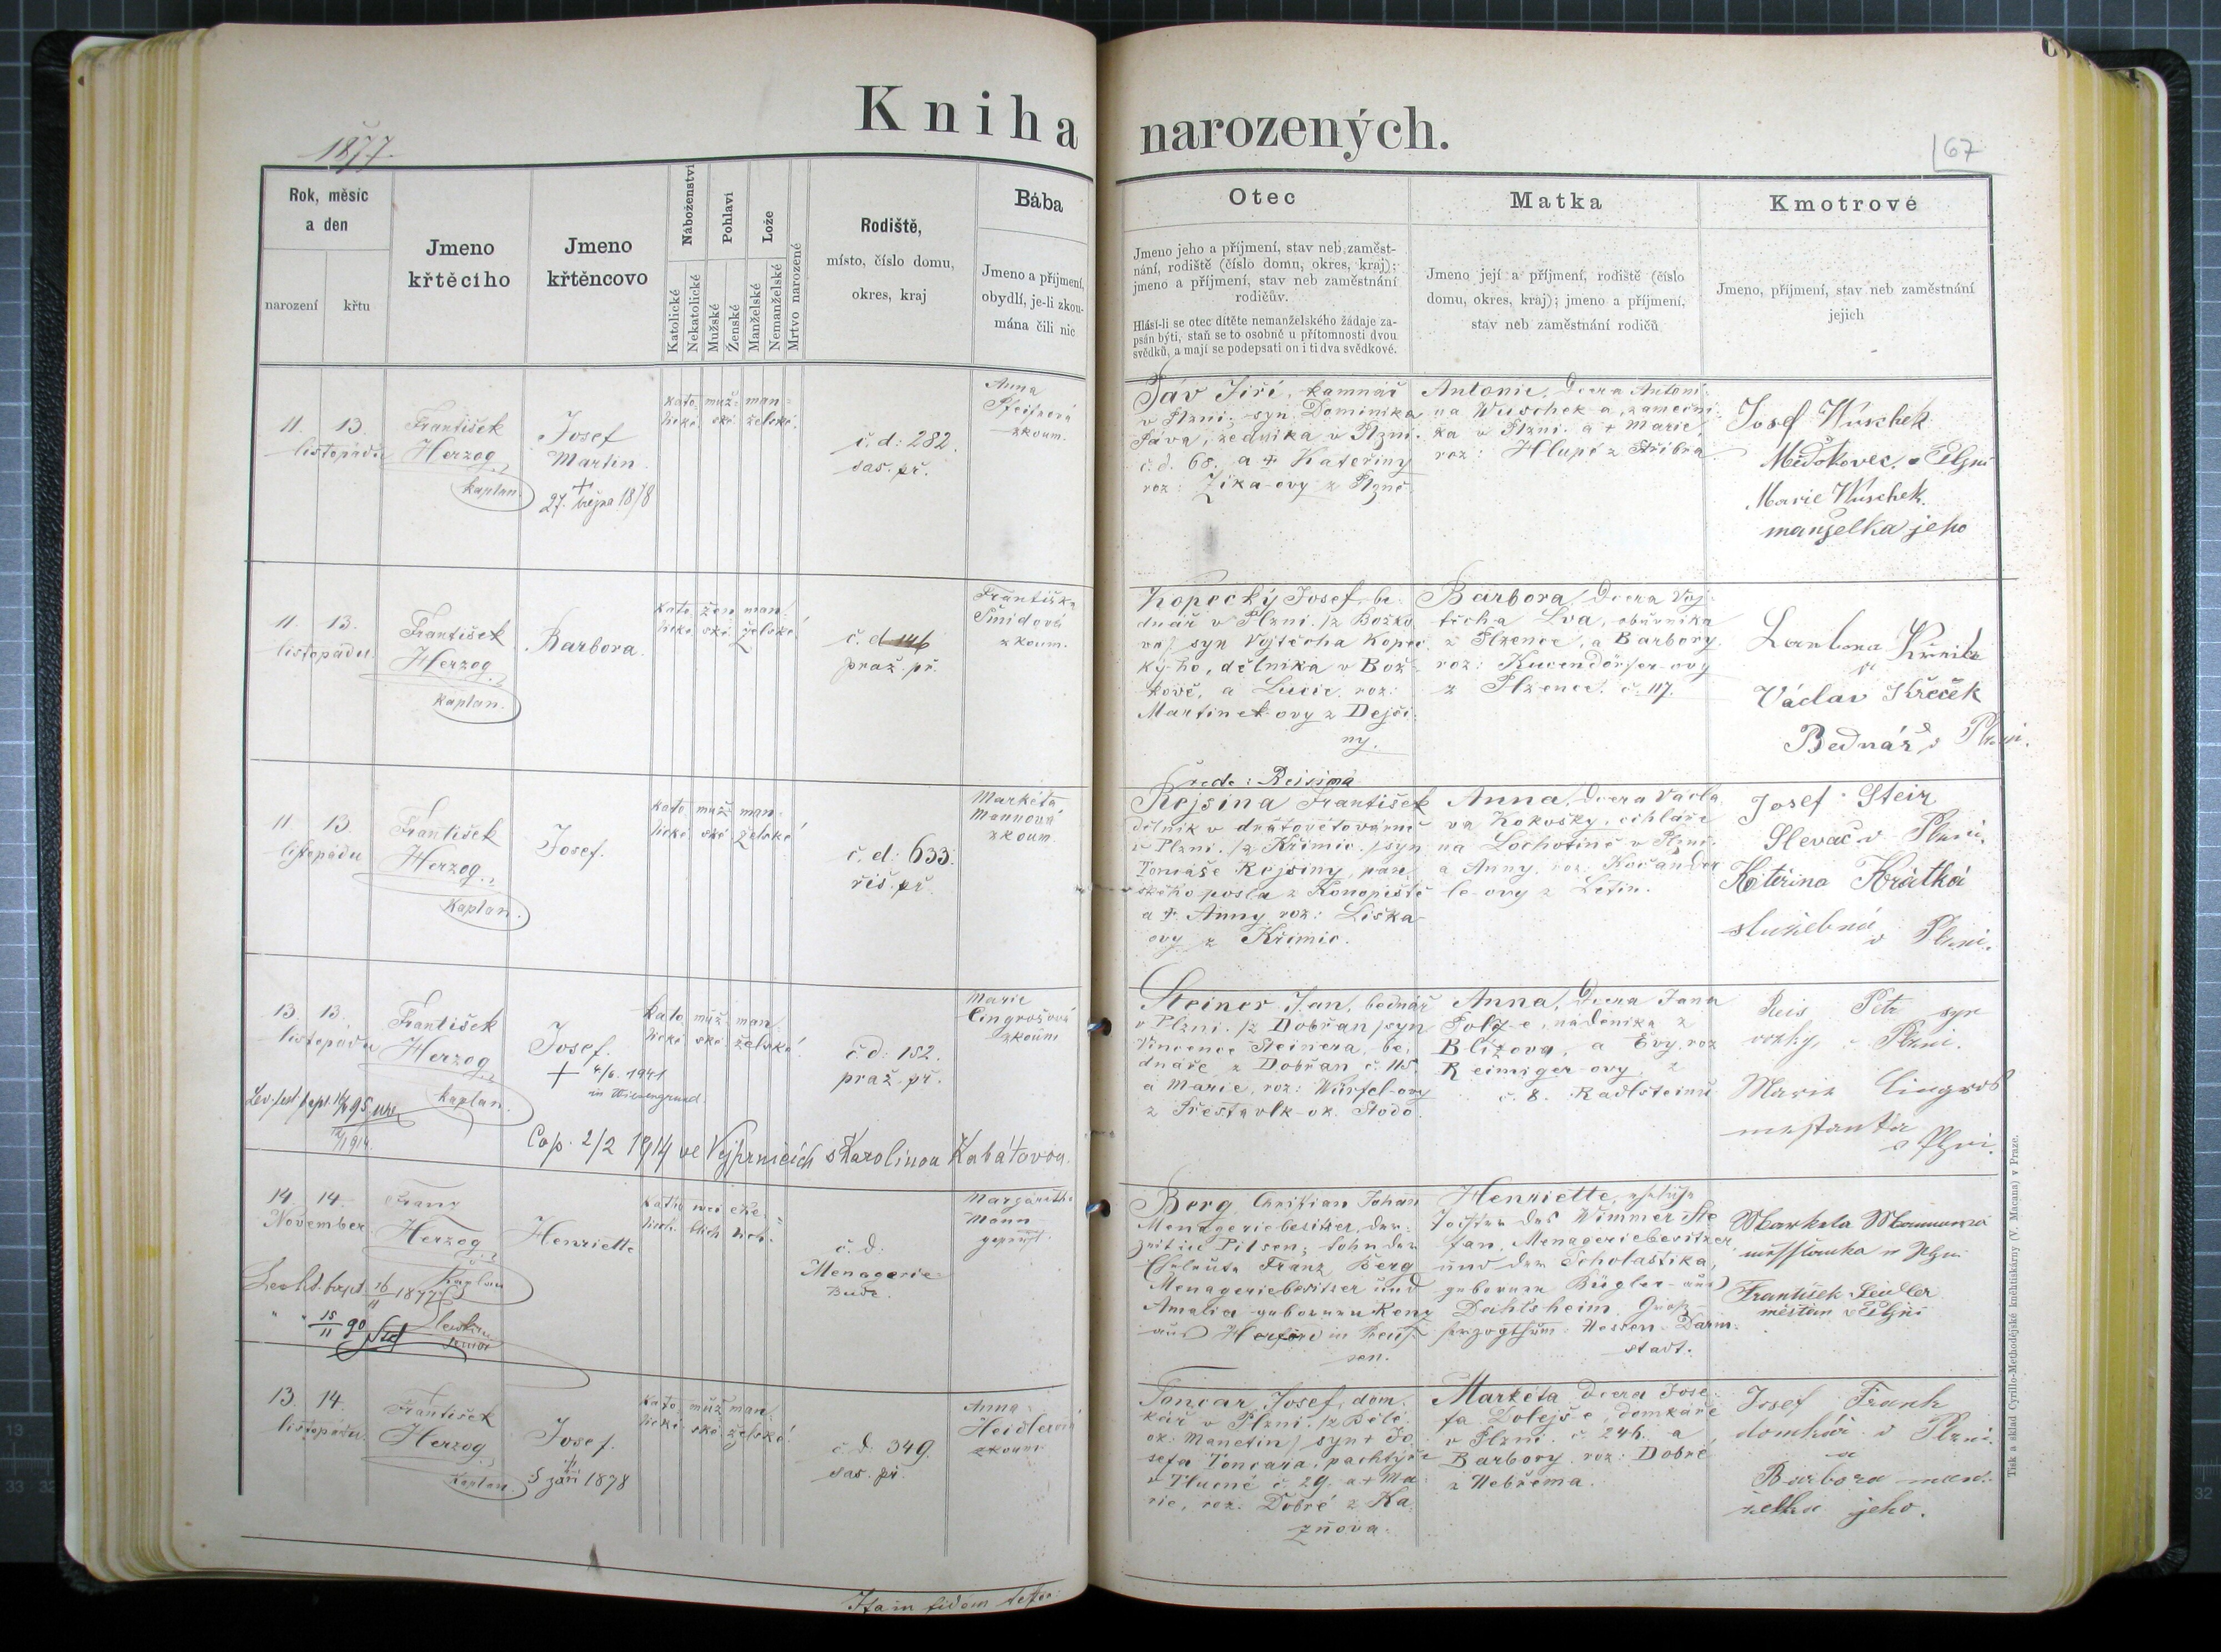 Kniha narozených.
1877
167
Rok, měsíc
a den
narození
křtu
Jmeno
křtěcího
Jmeno
křtěncovo
Náboženství
Katolické
Nekatolické
Pohlaví
Mužské
Ženské
Lože
Manželské
Nemanželské
Mrtvo narozené
Rodiště,
místo, číslo domu,
okres, kraj
Bába
Jmeno a příjmení,
obydlí, je-li zkou-
mána čili nic
Otec
Jmeno jeho a příjmení, stav neb zaměst-
nání, rodiště (číslo domu, okres, kraj);
jmeno a příjmení, stav neb zaměstnání
rodičův.
Hlásí-li se otec dítěte nemanželského žádaje za-
psán býti, staň se to osobně u přítomnosti dvou
svědků, a mají se podepsati on i ti dva svědkové.
Matka
Jmeno její a příjmení, rodiště (číslo
domu, okres, kraj); jmeno a příjmení,
stav neb zaměstnání rodičů
Kmotrové
Jmeno, příjmení, stav neb zaměstnání
jejich
11. 13.
listopadu
František
Herzog
kaplan.
Josef
Martin
+
27. října 1878
kato- muž- man-
lické ské želské
č. d: 282.
sas. př.
Anna
zkoum.
Páv Jiří, kamnář
v Plzni, syn Dominika
Páva, zedníka v Plzni
č. d. 68. a + Kateřiny
roz: Zíka-ovy z Plzně.
Antonie, dcera Antoní-
na Wuschek-a, zameční-
ka v Plzni a + Marie,
roz: Hlupé z Stříbra.
Josef Wuschek
v Plzni
Marie Wuschek
manželka jeho
11. 13.
listopadu.
František
Herzog
kaplan.
Barbora.
kato žen man-
lické ské želské
č. d 146
praž. př.
Františka
Šmídová
zkoum.
Kopecký Josef, be-
dnář v Plzni /z Božko-
va/ syn Vojtěcha Kopec-
ký-ho, dělníka v Bož-
kově, a Lucie, roz:
Martínek-ovy z Dejši-
ny.
Barbora, dcera Voj-
těcha Lva, obuvníka
z Plzence, a Barbory
roz: Kucendörfer-ovy
z Plzence č. 117.
Václav Křeček
Bednář v Plzni.
11 13.
listopadu
František
Herzog
Kaplan.
Josef.
kato muž- man-
lické ské želské
č. d: 633.
říš. př.
Markéta
Mannová
zkoum
recte: Reisima
Rejsina František
dělník v drátovětovárně
v Plzni. /z Křimic./ syn
Tomáše Rejsiny, pan-
ského posla z Konopiště
a + Anny roz: Liška-
ovy z Křimic.
Anna, dcera Václa-
va Kokošky, cihláře
na Lochotíně v Plzni
a Anny, roz: Kočander
le-ovy z Letin.
Josef Steir
Slevač v Plzni.
Kateřina Krátká
služebná
v Plzni.
13. 13.
listopadu
František
Herzog
kaplan.
Josef.
+ 4/6. 1941
in Wiesengrund.
Kato muž man-
lické ské želské
č. d: 152.
praž. př.
Marie
Lingrošová
zkoum
1914.
Cop. 2/2 1914 ve Vejprnicích s Karolinou Kabátovou.
Steiner Jan, bednář
v Plzni. /z Dobřan/ syn
Vincence Steinera, be-
dnáře z Dobřan č. 115.
a Marie, roz: Würfel-ovy
z Přestavlk ok. Stodo.
Anna, dcera Jana
Polz-e, nádeníka z
Blížova, a Evy roz
Reiminger-ovy, z
č. 8. Radlsteinu
Reis Petr syn
v Plzni.
Marie Lingroš
měšťanka
v Plzni.
14. 14.
November
Franz
Herzog
Kaplan
Henriette
Katho wei ehe-
lisch. blich lich.
č. d:
Menagerie
Bude.
Margaretha
Mann
geprüft.
Berg, Christian Johan
Menageriebesitzer, der-
zeit in Pilsen; Sohn der
Eheleute Franz Berg
Menageriebesitzer und
Amalia geborene Reny
aus Herford in Preus-
sen.
Henriette, eheliche
Tochter des Wimmer Ste-
fan, Menageriebesitzer
und der Scholastika,
geborene Bügler aus
Dahlsheim, Groß-
herzogthum Hessen-Darm-
stadt.
Markéta Mannová
měšťanka v Plzni
František Feidler
měštan v Plzni
13. 14.
listopadu.
František
Herzog
Kaplan.
Josef.
+
5 září 1878
Kato muž man-
lické ské želské
č. d: 349.
sas. př.
Anna
Heidlerová
zkoum
Toncar Josef, dom-
kář v Plzni. /z Bělé
ok: Manetín/ syn + Jo-
sefa Toncara, pachtýře
v Tlucné č. 29. a + Ma-
rie, roz: Dobré z Ka-
znova.
Markéta, dcera Jose-
fa Dolejš-e, domkáře
v Plzni č. 246. a
Barbory, roz: Dobré
z Nebřema.
Josef Frank
domkář v Plzni.
a
Barbora man-
želka jeho.
Ita in fidem testor
Tisk a sklad Cyrillo-Methodějské knihtiskárny (V. Macana) v Praze.